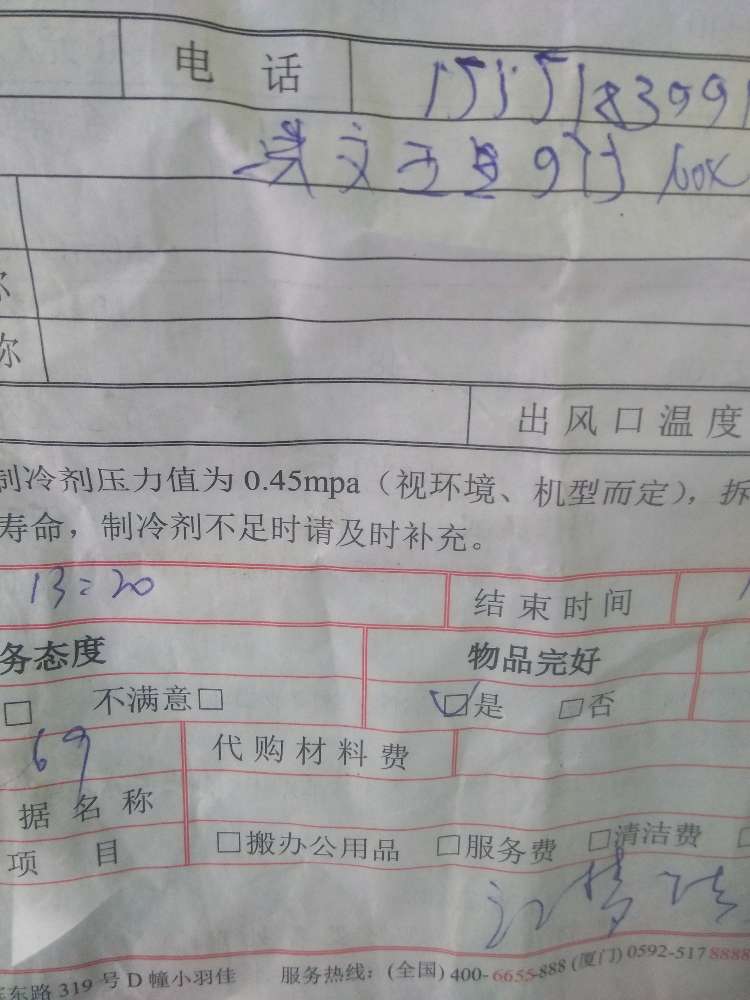 电话 15151183991
文
称
称
出风口温度
制冷剂压力值为0.45mpa（视环境、机型而定），拆
寿命，制冷剂不足时请及时补充。
13:20 结束时间
务态度 物品完好
□ 不满意□ ☑是 □否
69 代购材料费
据名称
项目 □搬办公用品 □服务费 □清洁费 □
东路319号D幢小羽佳 服务热线：(全国)400-6655-888(厦门)0592-5178888